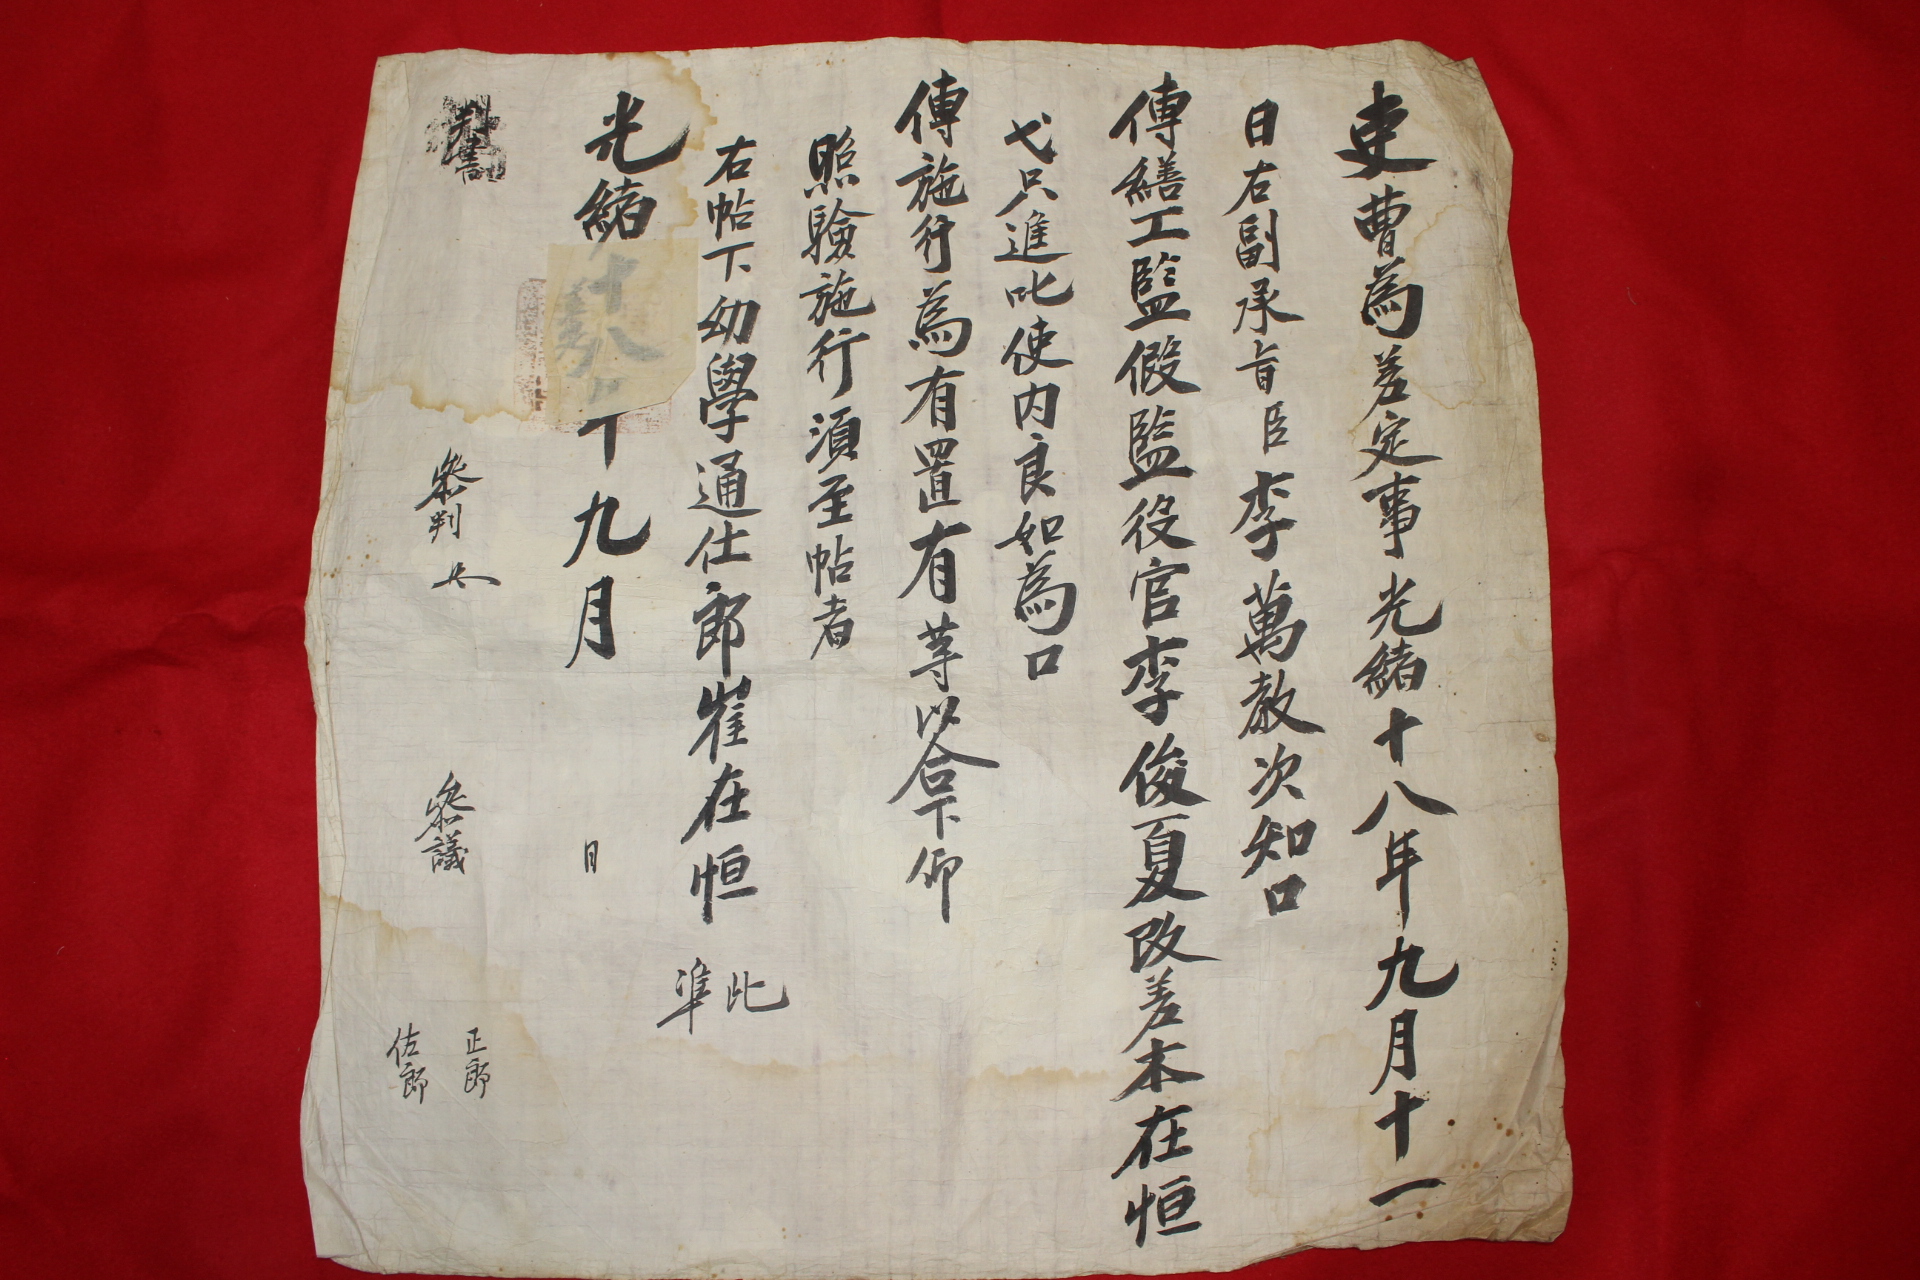 吏曹為差定事光緒十八年九月十一
日右副承旨臣李萬教次知口
傳繕工監假監役官李俊夏改差本在恒
弋只進叱使內良如為口
傳施行為有置有等以合下仰
照驗施行須至帖者
右帖下幼學通仕郎崔在恒 準此
光緒十八年九月 日
參判
參議
正郎
佐郎